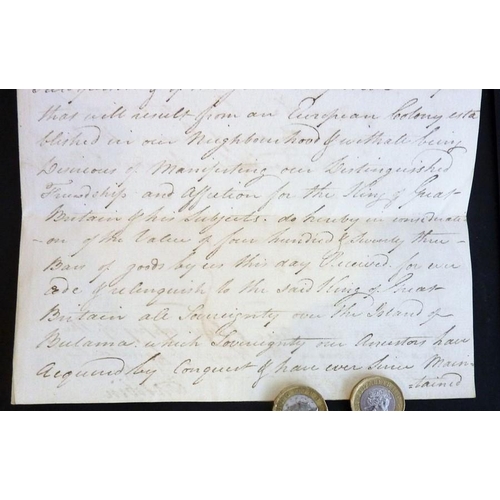 that will result from an European Colony esta
blished in our Neighbourhood & withall being
Desirous of Manifesting our Distinguished
Friendship and Affection for the King of Great
Britain & his Subjects. do hereby in consederati
-on of the Value of four hundred & Seventy three
Bars of goods by us this day Received for ever
cede & relinquish to the said King of Great
Britain all Sovereignty over The Island of
Bulama. which Sovereignty our Ancestors have
Acquired by Conquest & have ever Since Main
=tained